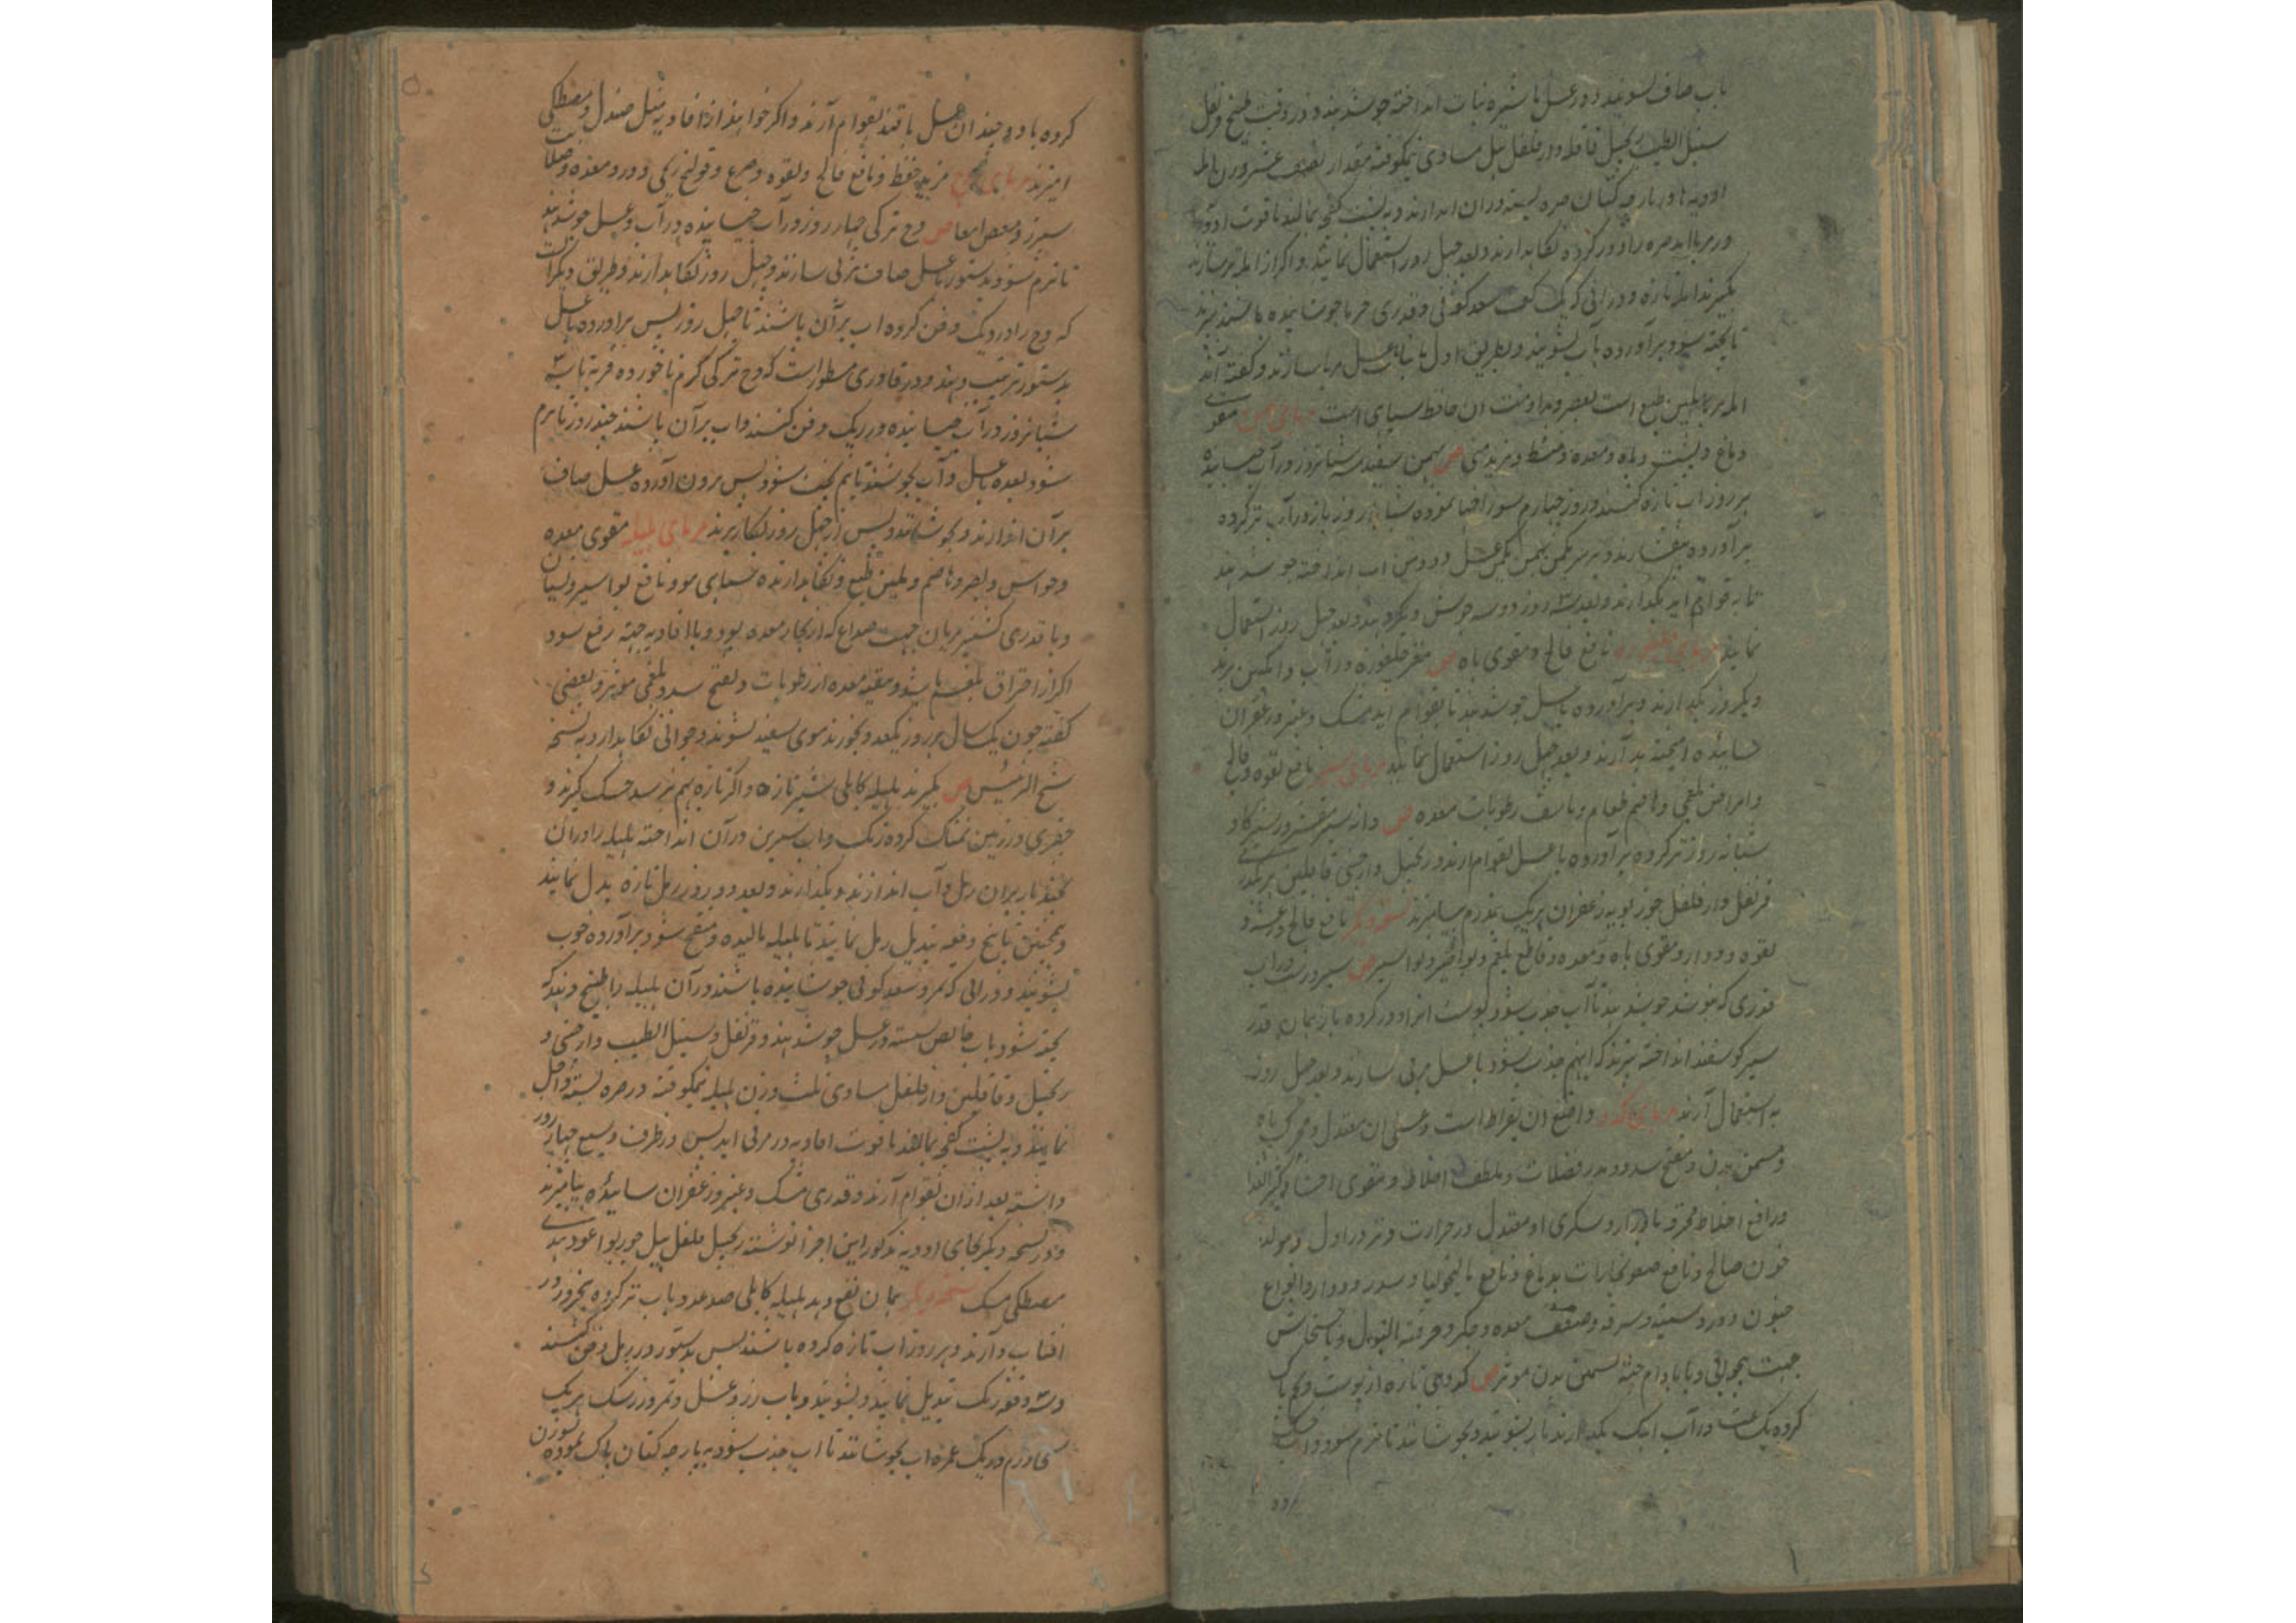 باب صاف بشویند و در عسل یا شیره نبات انداخته جوشدهند و در وقت طبخ قرنفل
سنبل الطیب زنجبیل قاقله دارفلفل بیل مساوی نیمکوفته مقدار نصف عشر وزن املہ
ادویه ها در پارچه کتان صره بسته در ان اندازند و به پشت کفچه بمالند تا قوت ادویه
در مربا اید صره را دور کرده نکاہدارند و بعد چہل روز استعمال نمایند و اکر از املہ تر سازند
بکیرند املہ تازه و در آبی که یک کف سعد کوفی و قدری خرما جوشانیده باشند بپزند
تا پخته شود برآورده بآب بشویند و بطریق اول با نبات یا عسل مربا سازند و کفته اند
املہ مربا ملین طبع است بعصر و مداومت ان حافظ سیاہی است مربای بہمن مقوی
دماغ و پشت و باه و معده و منشط و مزید منی ص بہمن سفید سه شبانروز در آب خیسانیده
ہر روز اب تازه کنند و روز چہارم سوراخها نموده شبانه روز باز در آب تر کرده
برآورده بیفشارند و بر ہر یکمن بہمن یکمن عسل و دو من اب انداخته جوشدهند
تا به قوام اید بکذارند و بعد سه روز دو سه جوش دیکر دهند و بعد چہل روز استعمال
نمایند مربای نافع فالج و مقوی باه ص مغز چلغوزه در آب و انکبین بپزند
و یکروز بکذارند و برآورده با عسل جوشدهند تا بقوام اید مشک و عنبر و زعفران
سائیده امیخته بدارند و بعد چہل روز استعمال نمایند مربای سیر نافع لقوه و فالج
و امراض بلغمی و ہاضم طعام و ناشف رطوبات معده ص دانہ سیر مقشر در شیر کاو
شبانه روز تر کرده برآورده با عسل بقوام ارند و زنجبیل دارچینی قاقلین ہر یکدرم
قرنفل دارفلفل جوزبویه زعفران ہر یک نیمدرم بیامیزند نسخه دیکر نافع فالج و رعشه و
لقوه و دوار و مقوی باه و معده و قاطع بلغم و بواسیر ص سیر درست در اب
قدری که بپوشد جوشدهند تا آب جذب شود پوست انرا دور کرده باز بہمان قدر
شیر کوسفند انداخته بپزند که انہم جذب شود با عسل مربی سازند و بعد چہل روز
به استعمال آرند مربای کدو واضع ان بقراط است و عسلی ان معتدل و محرک باه
و مسمن بدن و مفتح سدد و مدر فضلات و ملطف اخلاط و مقوی احشا و کثیر الغذا
و رافع اخلاط محترقه با ادرار و سکری او معتدل در حرارت و تر در اول و مولد
خون صالح و مانع صعود بخارات بدماغ و نافع مالیخولیا و سدر و دوار و انواع
جنون و درد سینه و سرفه و ضعف معده و جکر و حرقة البول و با خشخاش
جہت بیخوابی و با بادام جہة تسمین بدن موثر ص کدوی تازه از پوست و تخم پاک
کرده یک شب در آب اہک بکذارند باز بشویند و بجوشانند تا نرم شود و اب
کرده با دو چندان عسل یا قند بقوام آرند و اکر خواہند از افاویه مثل صندل و مصطکی
امیزند مربای وج مزید حفظ و نافع فالج و لقوه و صرع و قولنج ریحی و درد معده و صلابت
سپرز و مغص امعا ص وج ترکی چہار روز در آب خیسانیده در آب و عسل جوشدهند
تا نرم شود و بدستور با عسل صاف مربی سازند و چہل روز نکاہدارند و طریق دیکر انست
که وج را در ریک دفن کرده اب بر آن پاشند تا چہل روز پس برآورده با عسل
بدستور ترتیب دہند و در قادری مسطور است که وج ترکی کرم ناخورده فربه تا سه
شبانروز در آب خیسانیده در ریک دفن کنند و اب بر آن پاشند چند روز تا نرم
شود بعده با عسل و آب بجوشند تا نیم پخت شود پس برون آورده عسل صاف
بر آن اندازند و بجوشانند و پس از چہل روز بکار برند مربای ہلیله مقوی معده
و حواس و بصر و ہاضم و ملین طبع و نکاہدارنده سیاہی مو و نافع بواسیر و نسیان
و با قدری کشنیز بریان جہت صداع که از بخار معده بود و با افاویه جہة رفع سدد
اکر از احتراق بلغم باشد و منقیه معده از رطوبات و تفتح سدد بلغمی موثر و بعضی
کفته چون یک سال ہر روز یکعدد بخورند موی سفید نشوند و جوانی نکاہدارد به نسخه
شیخ الرئیس ص بکیرند ہلیله کابلی شیر تازه و اکر تازه بہم نرسد خشک کیرند و
حفری در زمین نمناک کرده ریک و اب شیرین در آن انداخته ہلیله را در ان
بر ان رمل و آب اندازند و بکذارند و بعد دو روز رمل تازه بدل نمایند
و ہمچنین تا پنج دفعه تبدیل رمل نمایند تا ہلیله بالیده و منتفخ شود برآورده خوب
بشویند و در ابی که تمر و سعد کوفی جوشانیده باشند در آن ہلیله را طبخ دہند که
پخته شود باب خالص شسته در عسل جوشدهند و قرنفل و سنبل الطیب و دارچینی و
زنجبیل و قاقلین و دارفلفل مساوی ثلث وزن ہلیله نیمکوفته در صره بسته داخل
نمایند و به پشت کفچه بمالند تا قوت افاویه در مربی اید پس در ظرف وسیع چہار روز
داشته بعد از ان بقوام آرند و قدری مشک و عنبر و زعفران سائیده بیامیزند
و در نسخه دیکر بجای ادویه مذکور این اجزا نوشته زنجبیل فلفل بیل جوزبوا عود ہندی
مصطکی مشک نسخه دیکر ہمان نفع دہد ہلیله کابلی صد عدد باب تر کرده
افتاب دارند و ہر روز اب تازه کرده باشند پس بدستور در رمل دفن کنند
و سه دفعه ریک تبدیل نمایند و بشویند و باب رز و عسل و تمر و زرشک ہریک
پنجاه درم و ریک عمره اب بجوشانند تا اب جذب شود به پارچه کتان پاک نموده